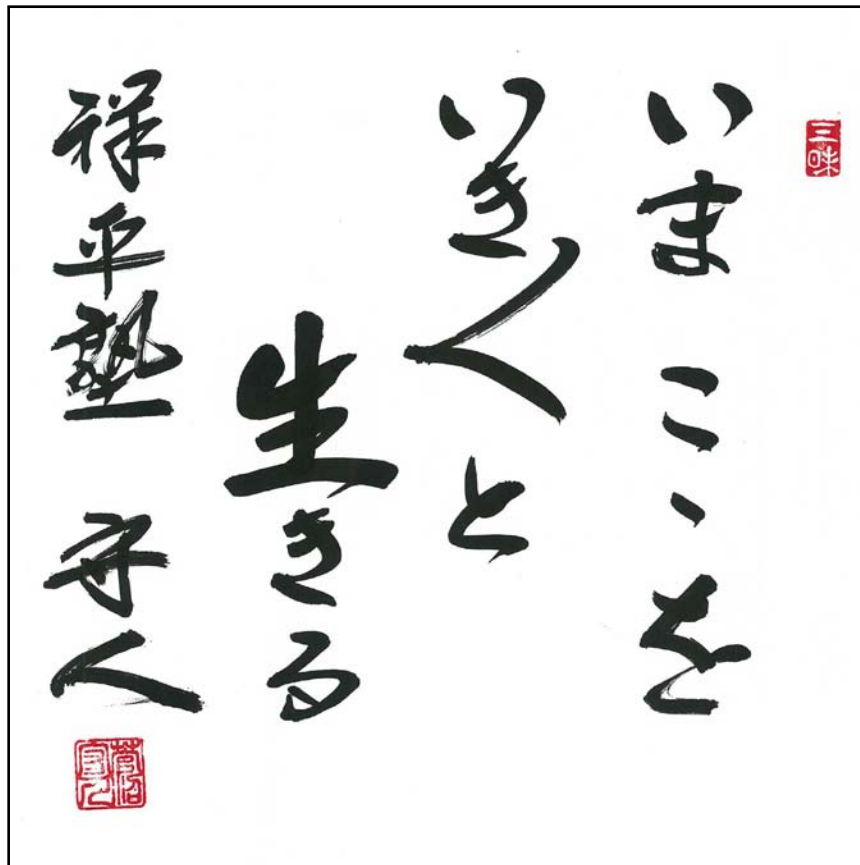 三昧
いま こゝを
いき〱と
生きる
祥平塾 守人